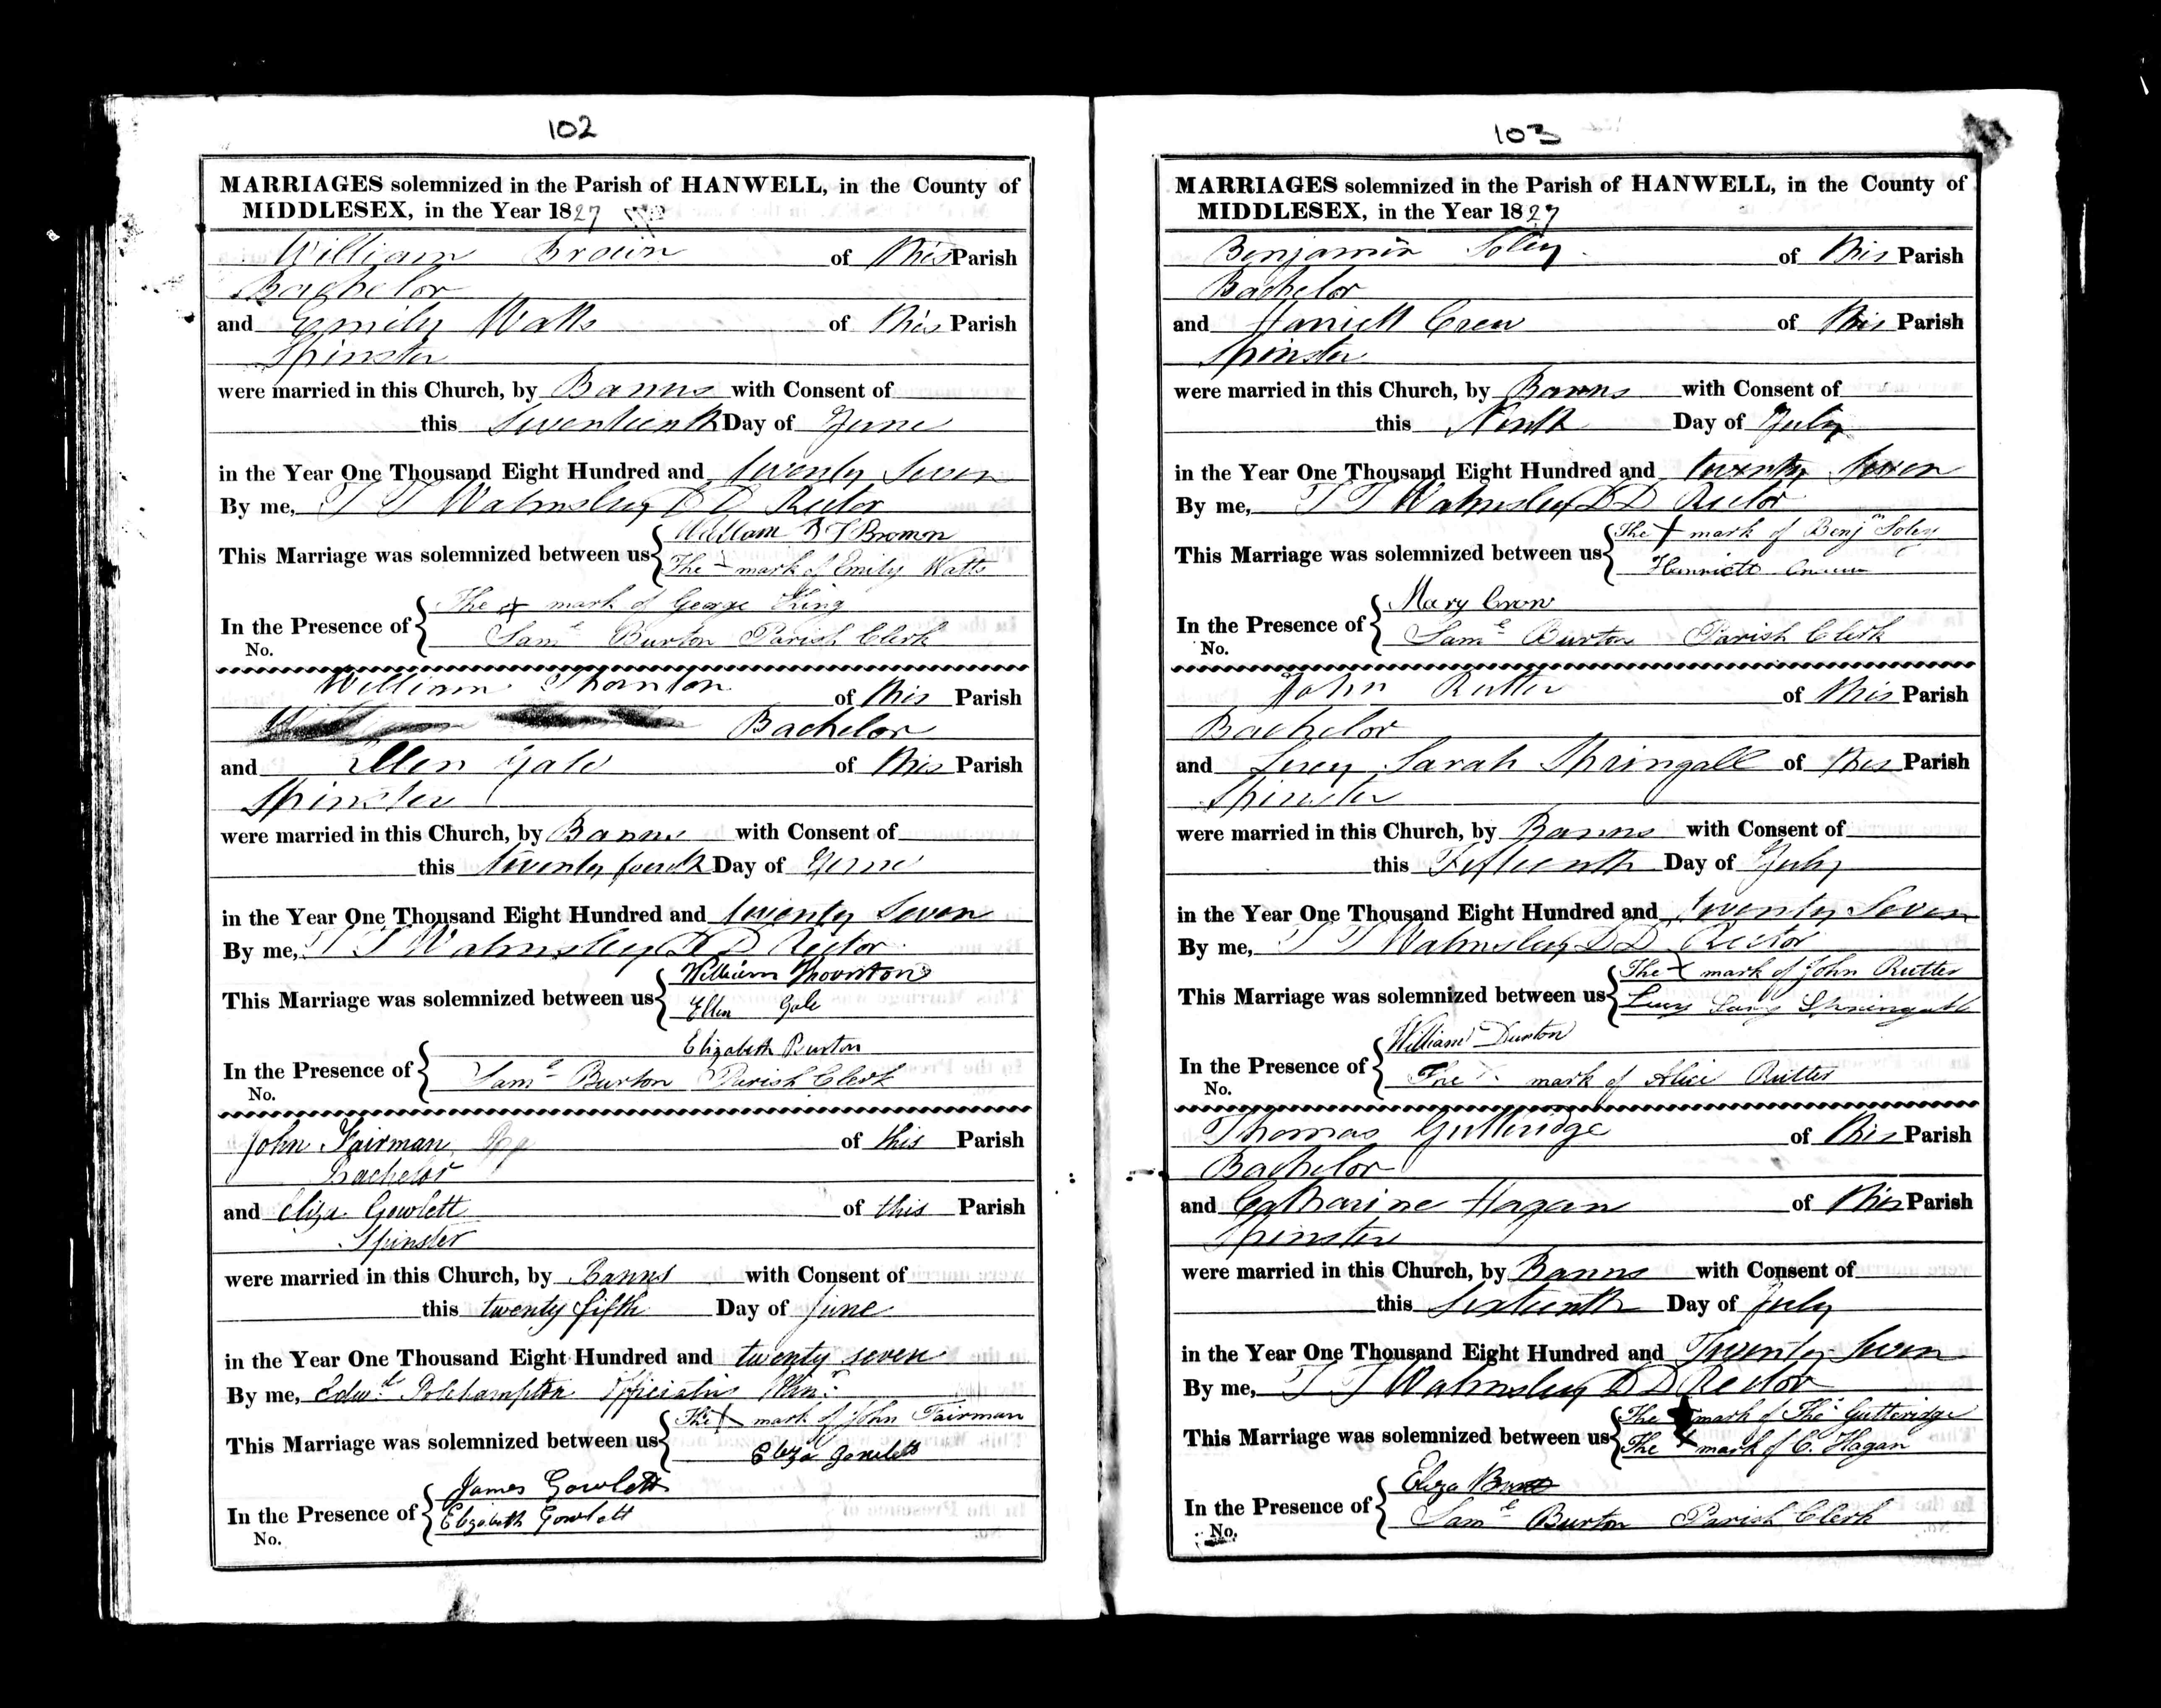 102
MARRIAGES solemnized in the Parish of HANWELL, in the County of
MIDDLESEX, in the Year 1827
William Brown of this Parish
Bachelor
and Emily Watts of this Parish
Spinster
were married in this Church, by Banns with Consent of
this Seventeenth Day of June
in the Year One Thousand Eight Hundred and twenty Seven
By me, T T Walmsley D D Rector
This Marriage was solemnized between us William
The x mark of Emily Watts
In the Presence of The x mark of George King
Saml Burton Parish Clerk
No.
William Thornton of this Parish
Bachelor
and Ellen Gale of this Parish
Spinster
were married in this Church, by Banns with Consent of
this twenty fourth Day of June
in the Year One Thousand Eight Hundred and twenty Seven
By me, T T Walmsley D D Rector
This Marriage was solemnized between us William Thornton
Ellen Gale
In the Presence of Elizabeth Burton
Saml Burton Parish Clerk
No.
John Fairman of this Parish
Bachelor
and Eliza Gowlett of this Parish
Spinster
were married in this Church, by Banns with Consent of
this twenty fifth Day of June
in the Year One Thousand Eight Hundred and twenty seven
By me, Edwd Polehampton Officiating Minr
This Marriage was solemnized between us The x mark of John Fairman
Eliza Gowlett
In the Presence of James Gowlett
Elizabeth Gowlett
No.
103
MARRIAGES solemnized in the Parish of HANWELL, in the County of
MIDDLESEX, in the Year 1827
Benjamin Soley of this Parish
Bachelor
and Harriett Crew of this Parish
Spinster
were married in this Church, by Banns with Consent of
this Ninth Day of July
in the Year One Thousand Eight Hundred and twenty Seven
By me, T T Walmsley D D Rector
This Marriage was solemnized between us The x mark of Benjn Soley
Harriett
In the Presence of Mary Crew
Saml Burton Parish Clerk
No.
John Rutter of this Parish
Bachelor
and Lucy Sarah Springall of this Parish
Spinster
were married in this Church, by Banns with Consent of
this Fifteenth Day of July
in the Year One Thousand Eight Hundred and twenty Seven
By me, T T Walmsley D D Rector
This Marriage was solemnized between us The x mark of John Rutter
Lucy Springall
In the Presence of William Burton
The x mark of Alice Rutter
No.
Thomas Gutteridge of this Parish
Bachelor
and Catharine Hagan of this Parish
Spinster
were married in this Church, by Banns with Consent of
this Sixteenth Day of July
in the Year One Thousand Eight Hundred and Twenty Seven
By me, T T Walmsley D D Rector
This Marriage was solemnized between us The x mark of Thos Gutteridge
The x mark of C. Hagan
In the Presence of Eliza
Saml Burton Parish Clerk
No.